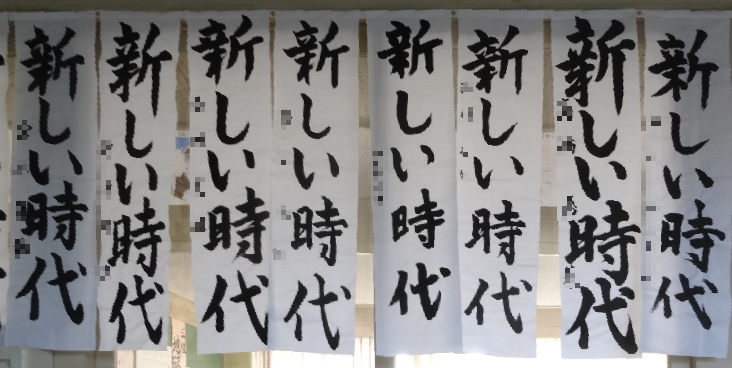 新しい時代
新しい時代
新しい時代
新しい時代
新しい時代
新しい時代
新しい時代
新しい時代